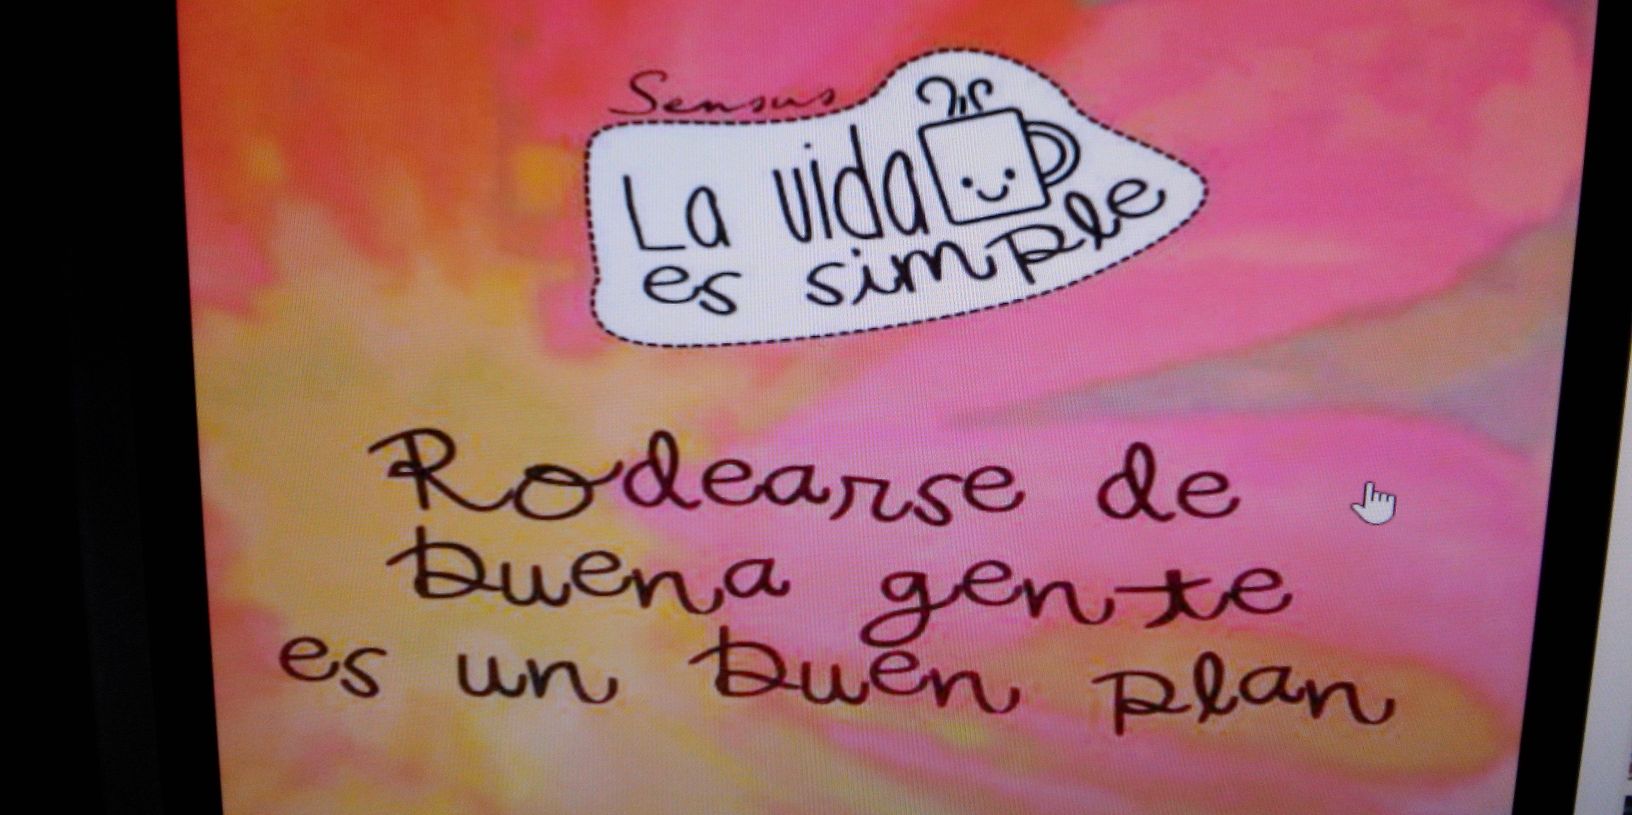 Sensus
La vida
es simple
Rodearse de
buena gente
es un buen plan